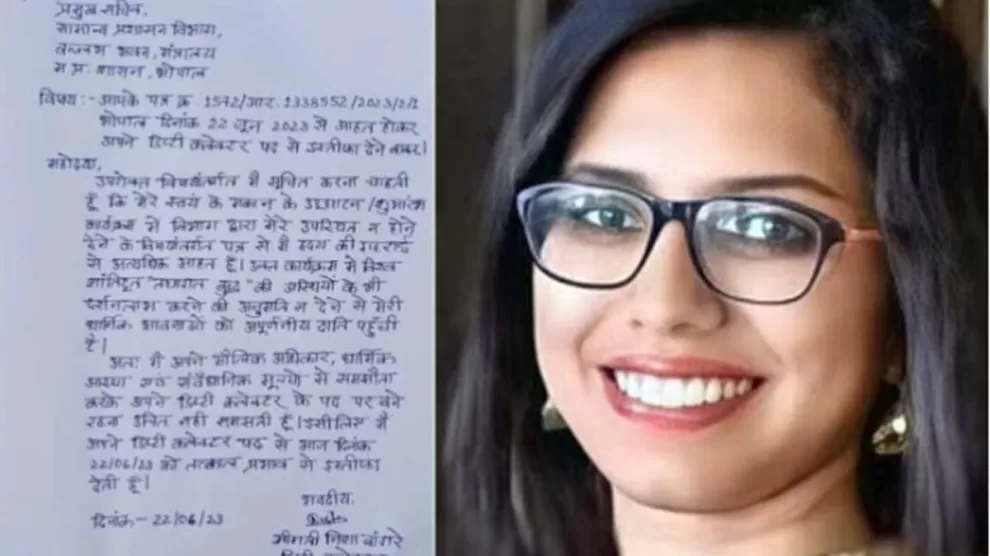 प्रमुख सचिव,
सामान्य प्रशासन विभाग,
वल्लभ भवन, मंत्रालय
म.प्र. शासन, भोपाल
विषय :- आपके पत्र क्र. 1572/आर. 1338552/2023/2/1
भोपाल दिनांक 22 जून 2023 से आहत होकर
अपने डिप्टी कलेक्टर पद से इस्तीफा देने बाबत।
महोदया,
उपरोक्त विषयांतर्गत मैं सूचित करना चाहती
हूँ कि मेरे स्वयं के मकान के उद्घाटन/शुभारंभ
कार्यक्रम में विभाग द्वारा मेरे उपस्थित न होने
देने के विषयांतर्गत पत्र से मैं हृदय की गहराई
से अत्यधिक आहत हूँ। उक्त कार्यक्रम में विश्व
शांतिदूत "तथागत बुद्ध" की अस्थियों के भी
दर्शनलाभ करने की अनुमति न देने से मेरी
धार्मिक भावनाओं को अपूर्णनीय क्षति पहुँची
है।
अतः मैं अपने मौलिक अधिकार, धार्मिक
आस्था एवं संवैधानिक मूल्यों से समझौता
करके अपने डिप्टी कलेक्टर के पद पर बने
रहना उचित नहीं समझती हूँ। इसीलिए मैं
अपने डिप्टी कलेक्टर पद से आज दिनांक
22/06/23 को तत्काल प्रभाव से इस्तीफा
देती हूँ।
भवदीय
दिनांक - 22/06/23
श्रीमती निशा बांगरे
डिप्टी कलेक्टर